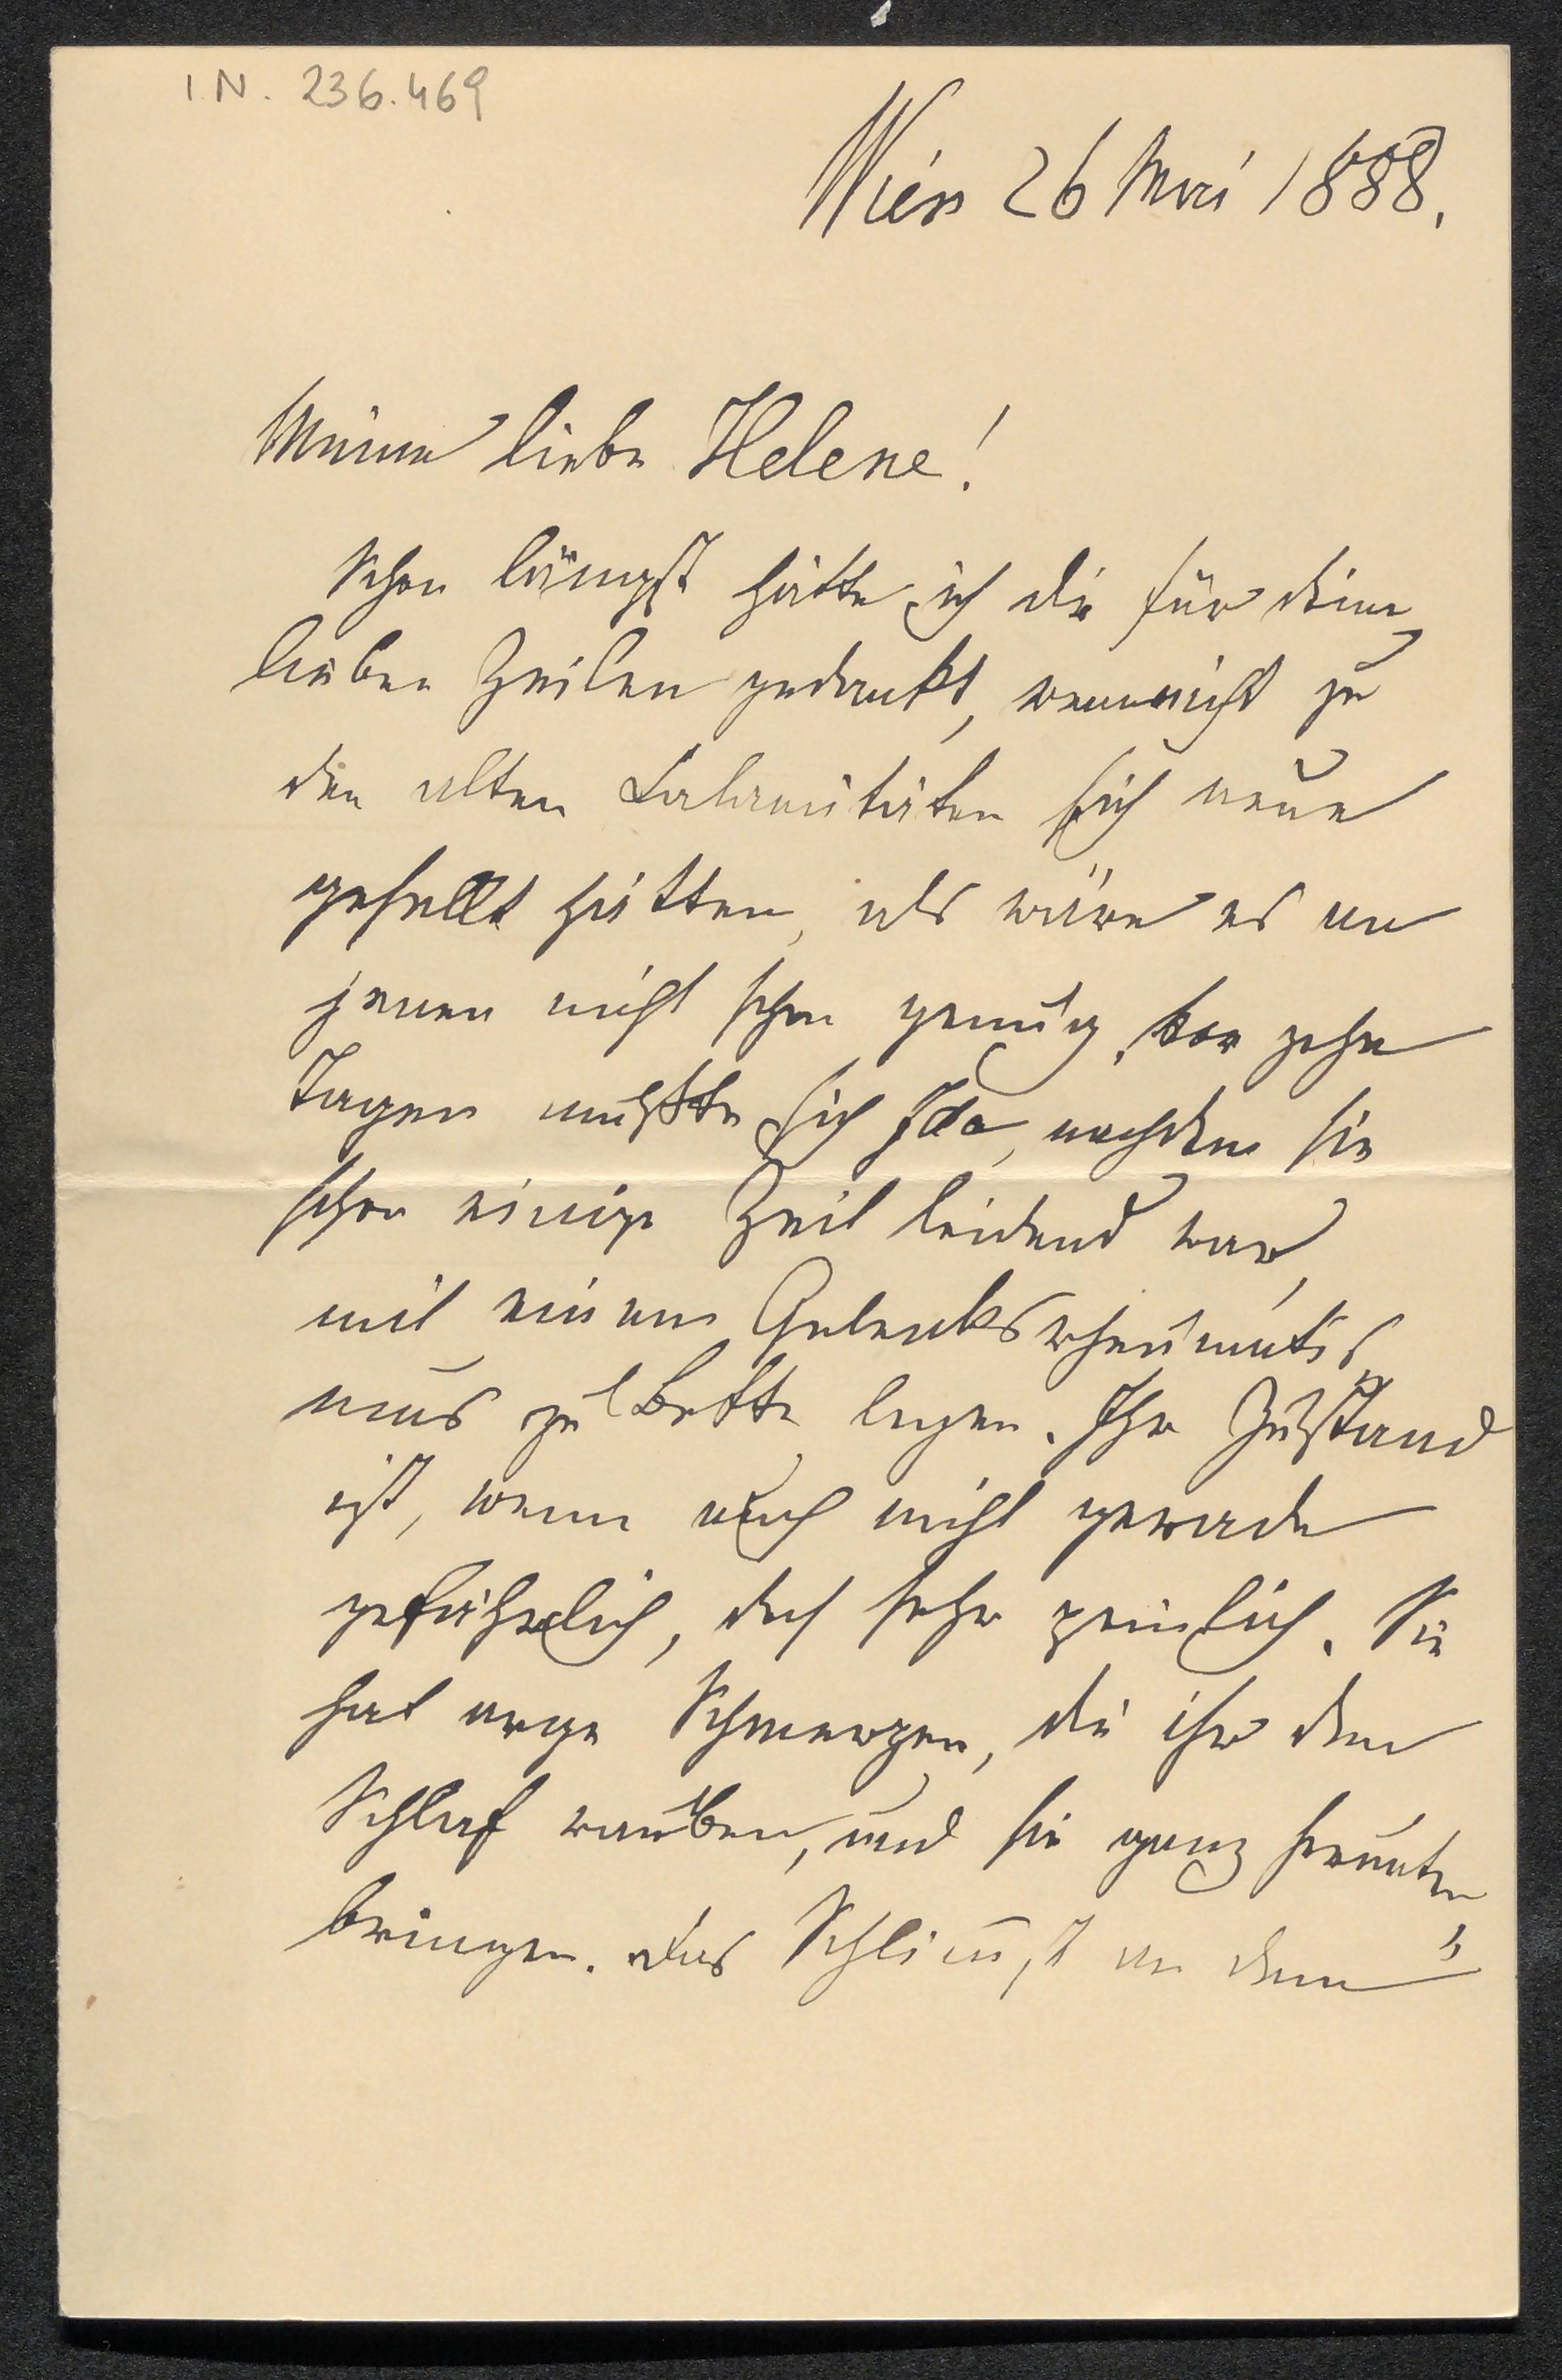 I.N. 236.469
Wien 26 Mai 1888.
Meine liebe Helene!
Schon längst hätte ich dir für deine
lieben Zeilen gedankt, wenn nicht zu
den alten Calamitäten sich neue
gesellt hätten, als wäre es an
jenen nicht schon genug. Vor zehn
Tagen mußte sich Ida, nachdem sie
schon einige Zeit leidend war,
mit einem Gelenksrheumatis
mus zu Bette legen. Ihr Zustand
ist, wenn auch nicht gerade
gefährlich, doch sehr peinlich. Sie
hat arge Schmerzen, die ihr den
Schlaf rauben, und sie ganz herunter
bringen. Das Schlimmst an dem